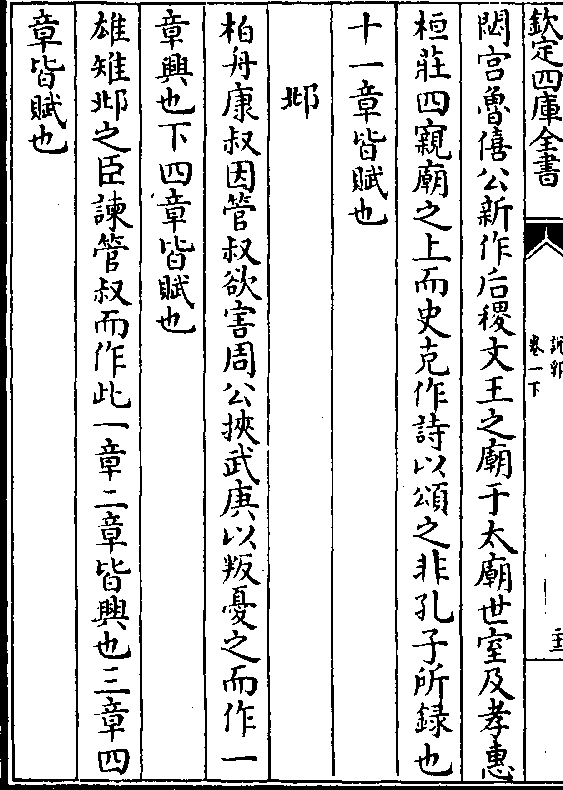 欽定四庫全書
說郛
卷一下
閟宫魯僖公新作后稷文王之廟于太廟世室及孝惠
桓莊四親廟之上而史克作詩以頌之非孔子所録也
十一章皆賦也
邶
柏舟康叔因管叔欲害周公挾武庚以叛憂之而作一
章興也下四章皆賦也
雄雉邶之臣諫管叔而作此一章二章皆興也三章四
章皆賦也